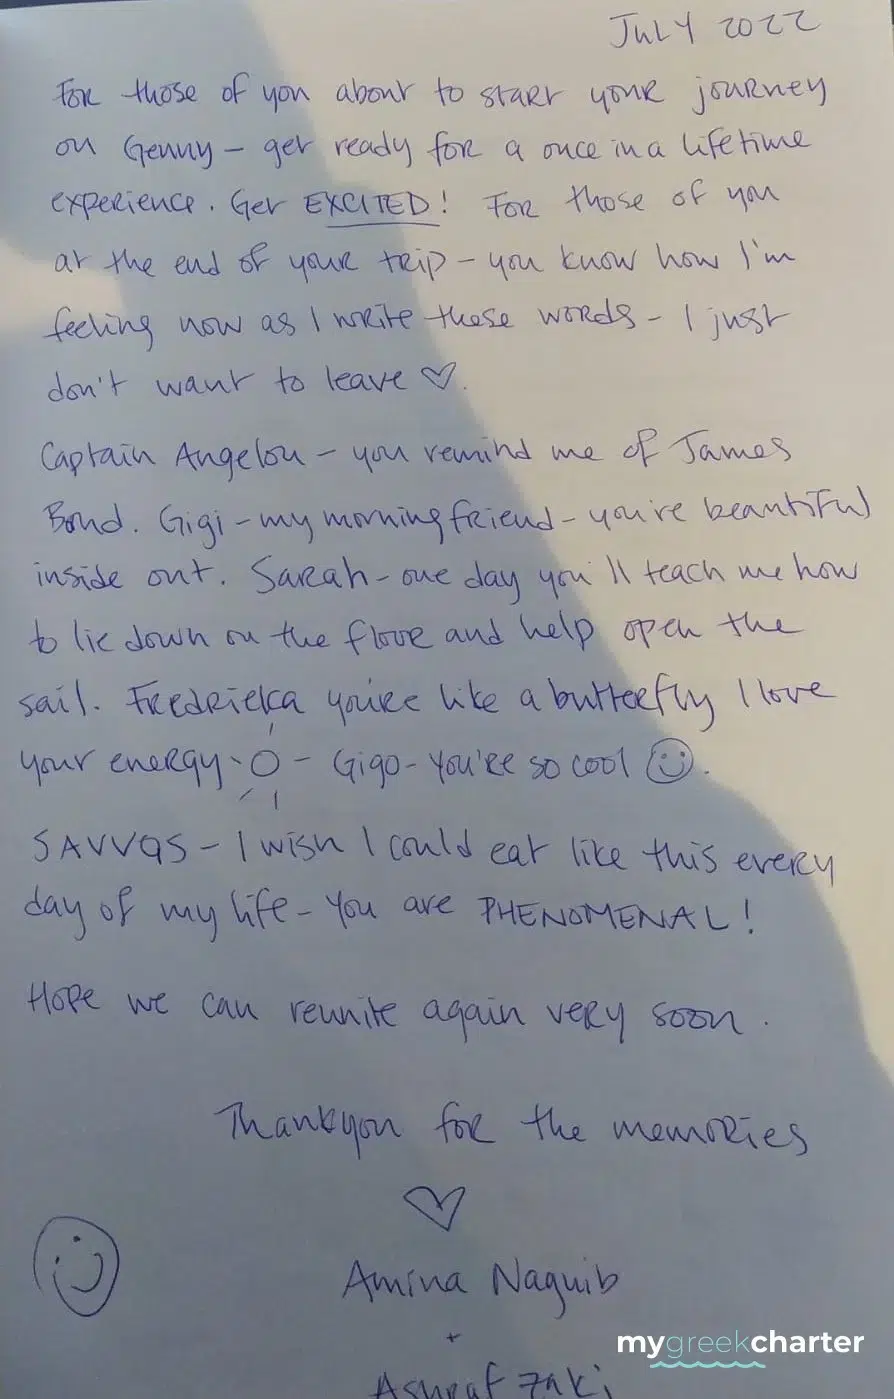 JULY 2022
For those of you about to start your journey
on Genny – get ready for a once in a lifetime
experience. Get EXCITED! For those of you
at the end of your trip – you know how I'm
feeling now as I write these words – I just
don't want to leave ♡.
Captain Angelou – you remind me of James
Bond. Gigi – my morning friend – you're beautiful
inside out. Sarah – one day you'll teach me how
to lie down on the floor and help open the
sail. Fredrieka you're like a butterfly I love
your energy – Gigo – you're so cool ☺.
SAVVAS – I wish I could eat like this every
day of my life – You are PHENOMENAL!
Hope we can reunite again very soon.
Thankyou for the memories
♡
Amina Naguib
+
Ashraf Zaki
mygreekcharter